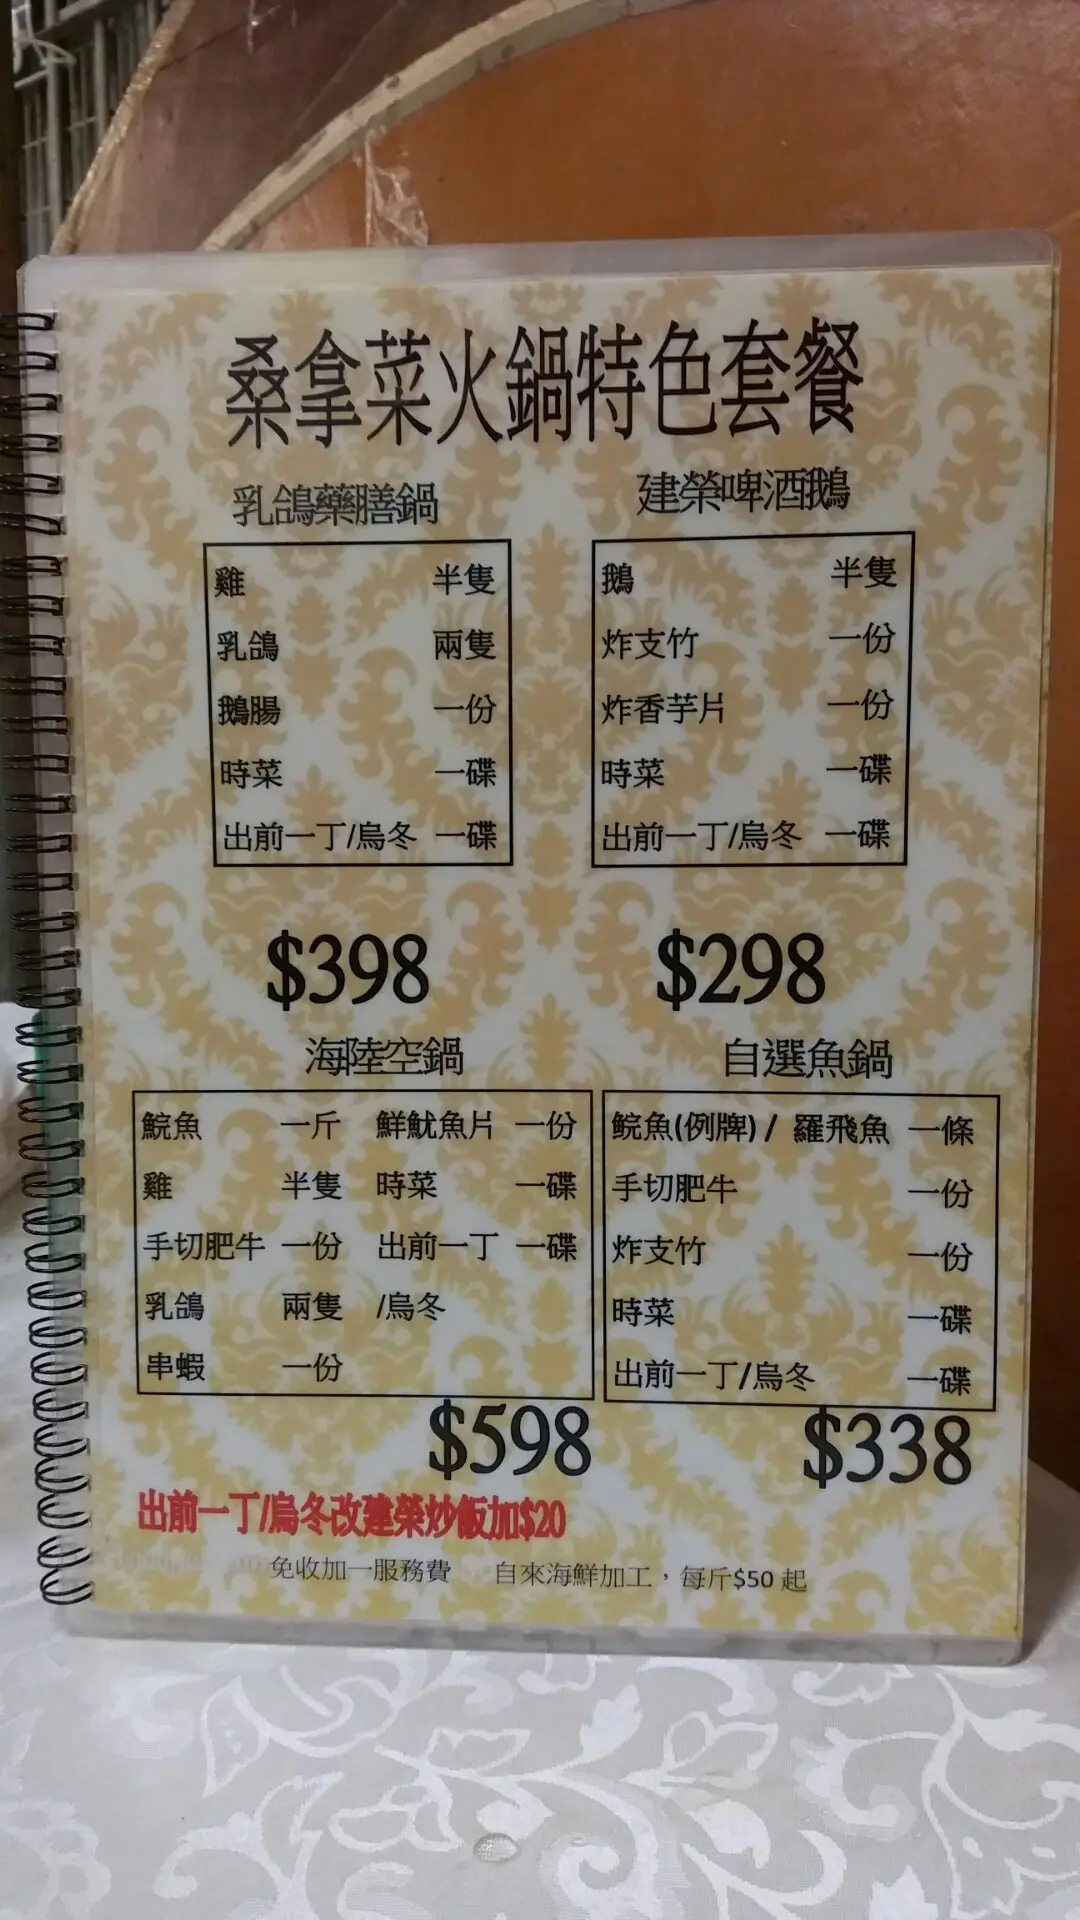 桑拿菜火鍋特色套餐
乳鴿藥膳鍋
雞 半隻
乳鴿 兩隻
鵝腸 一份
時菜 一碟
出前一丁/烏冬 一碟
$398
建榮啤酒鵝
鵝 半隻
炸支竹 一份
炸香芋片 一份
時菜 一碟
出前一丁/烏冬 一碟
$298
海陸空鍋
鯇魚 一斤 鮮魷魚片 一份
雞 半隻 時菜 一碟
手切肥牛 一份 出前一丁 一碟
乳鴿 兩隻 /烏冬
串蝦 一份
$598
自選魚鍋
鯇魚(例牌) / 羅飛魚 一條
手切肥牛 一份
炸支竹 一份
時菜 一碟
出前一丁/烏冬 一碟
$338
出前一丁/烏冬改建榮炒飯加$20
免收加一服務費 自來海鮮加工，每斤$50 起